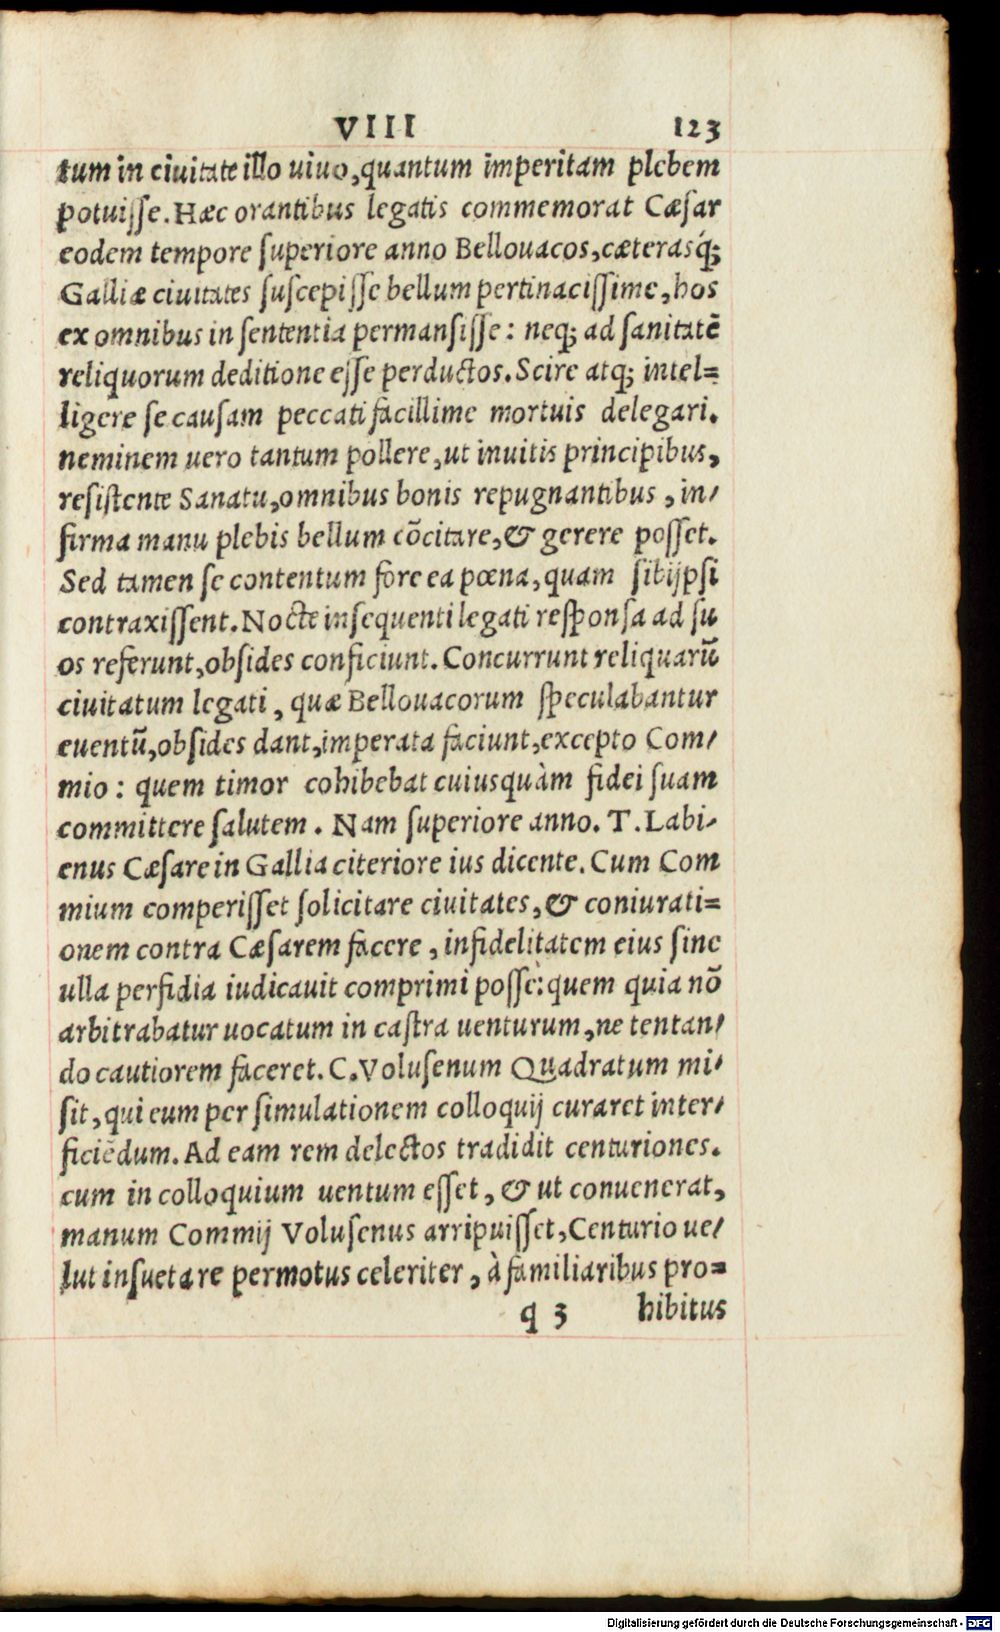 VIII 123
tum in ciuitate illo uiuo,quantum imperitam plebem
potuiſſe.Hæc orantibus legatis commemorat Cæſar
eodem tempore ſuperiore anno Bellouacos,cæterasq́;
Galliæ ciuitates ſuſcepiſſe bellum pertinaciſſime,hos
ex omnibus in ſententia permanſiſſe: neq; ad ſanitatē
reliquorum deditione eſſe perductos.Scire atq; intel=
ligere ſe cauſam peccati facillime mortuis delegari.
neminem uero tantum pollere,ut inuitis principibus,
reſiſtente Sanatu,omnibus bonis repugnantibus,in/
firma manu plebis bellum cōcitare,& gerere poſſet.
Sed tamen ſe contentum fore ea pœna,quam ſibijpſi
contraxiſſent.Nocte inſequenti legati reſponſa ad ſu
os referunt,obſides conficiunt.Concurrunt reliquarū
ciuitatum legati, quæ Bellouacorum ſpeculabantur
euentū,obſides dant,imperata faciunt,excepto Com/
mio: quem timor cohibebat cuiusquàm fidei ſuam
committere ſalutem. Nam ſuperiore anno. T.Labi/
enus Cæſare in Gallia citeriore ius dicente.Cum Com
mium comperiſſet ſolicitare ciuitates,& coniurati=
onem contra Cæſarem facere, infidelitatem eius ſine
ulla perfidia iudicauit comprimi poſſe:quem quia nō
arbitrabatur uocatum in caſtra uenturum,ne tentan/
do cautiorem faceret.C.Voluſenum Quadratum mi/
ſit,qui eum per ſimulationem colloquij curaret inter/
ficiēdum.Ad eam rem delectos tradidit centuriones.
cum in colloquium uentum eſſet, & ut conuenerat,
manum Commij Voluſenus arripuiſſet,Centurio ue/
lut inſueta re permotus celeriter, à familiaribus pro=
q 3 hibitus
Digitalisierung gefördert durch die Deutsche Forschungsgemeinschaft - DFG